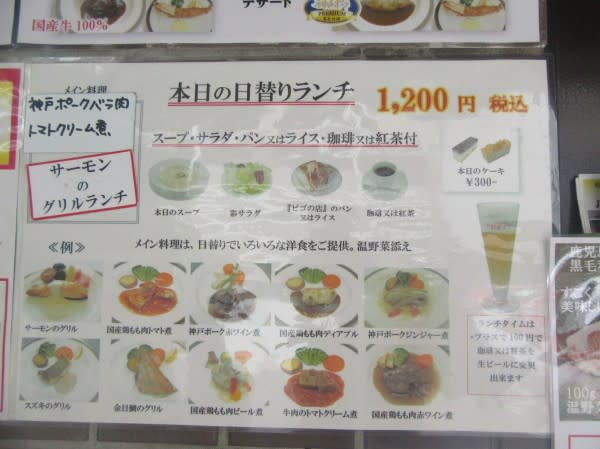 国産牛100%
デザート
PREMIUM
メイン料理
神戸ポークバラ肉
トマトクリーム煮、
サーモン
の
グリルランチ
本日の日替りランチ
1,200円 税込
スープ・サラダ・パン又はライス・珈琲又は紅茶付
本日のスープ
彩サラダ
『ビゴの店』のパン
又はライス
珈琲又は紅茶
本日のケーキ
¥300-
≪例≫
メイン料理は、日替りでいろいろな洋食をご提供。温野菜添え
サーモンのグリル
国産鶏もも肉トマト煮
神戸ポーク赤ワイン煮
国産鶏もも肉ディアブル
神戸ポークジンジャー煮
スズキのグリル
金目鯛のグリル
国産鶏もも肉ビール煮
牛肉のトマトクリーム煮
国産鶏もも肉赤ワイン煮
ランチタイムは
プラスで100円で
珈琲又は紅茶を
生ビールに変更
出来ます
鹿児
黒毛
美味し
100g
温野菜